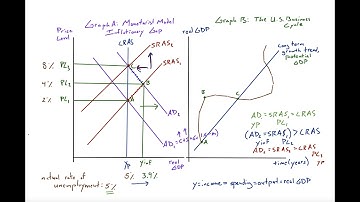 Graph A: Monetarist Model
Inflationary Gap
Price
Level
LRAS
SRAS2
SRAS1
8% PL3
4% PL2
2% PL1
C
B
A
AD2
YP
YinF
real GDP
natural rate of
unemployment: 5%
5% → 3.9%
Graph B: The U.S. Business
Cycle
real GDP
Long term
growth trend,
potential
GDP
B
C
A
AD1=SRAS1=LRAS
YP PL1
(AD2=SRAS1)>LRAS
YinF PL2
AD2=SRAS2=LRAS
PL3
YP
time (years)
y=income=spending=output=real GDP